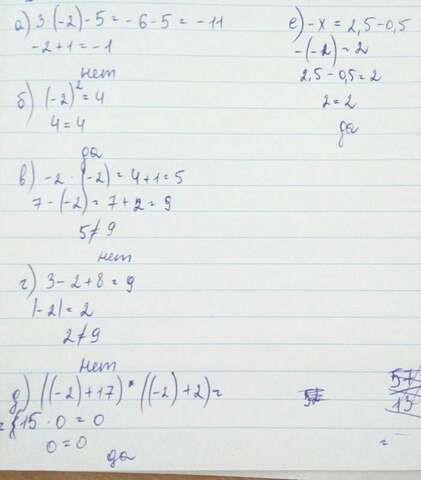 а) 3·(-2)-5 = -6-5 = -11
-2+1 = -1
нет
б) (-2)² = 4
4 = 4
да
в) -2·(-2) = 4+1 = 5
7-(-2) = 7+2 = 9
5≠9
нет
г) 3-2+8 = 9
|-2| = 2
2≠9
нет
д) ((-2)+17)*((-2)+2) =
= 15·0 = 0
0 = 0
да
е) -x = 2,5-0,5
-(-2) = 2
2,5-0,5 = 2
2 = 2
да
57
15
=